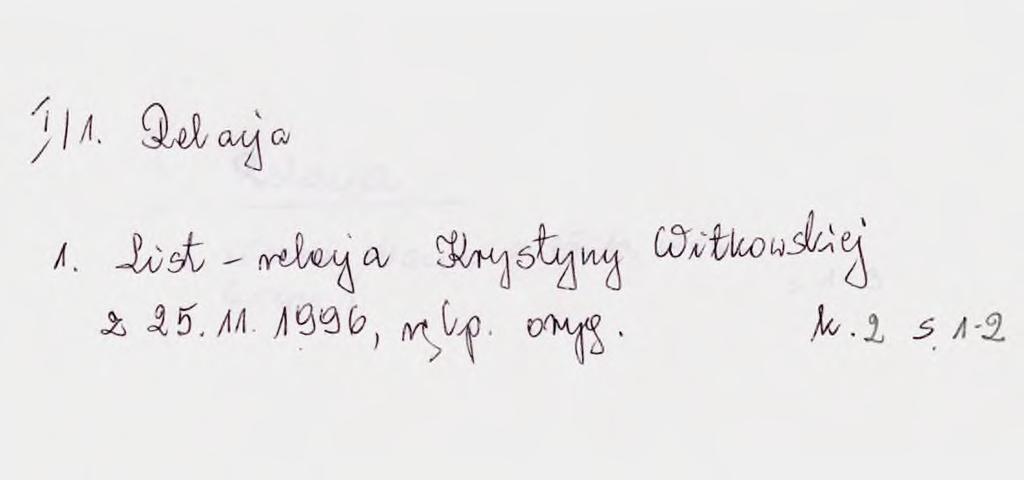 I/1. Relacja
1. List - relacja Krystyny Witkowskiej
z 25.11.1996, rękp. oryg. k. 2 s. 1-2